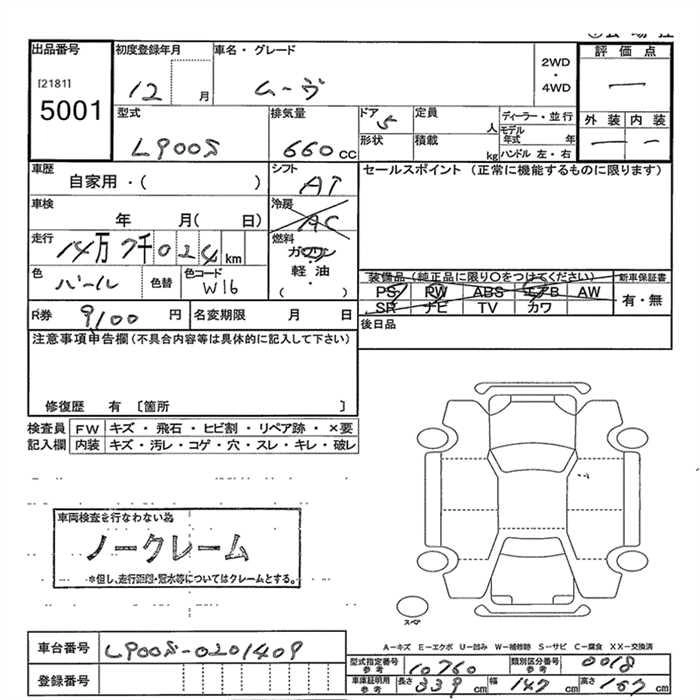 出品番号
[2181]
5001
初度登録年月
12 月
車名・グレード
ムーヴ
2WD
・
4WD
評価点
一
外装 内装
一 一
型式
L900S
排気量
660 CC
ドア
5
形状
定員
人
積載
kg
ディーラー・並行
モデル年式 年
ハンドル 左・右
車歴
自家用・( )
シフト
AT
セールスポイント (正常に機能するものに限ります)
車検
年 月( 日)
冷房
AC
走行
14万7千024km
燃料
ガソリン
軽・油
・
( )
色
パール
色替
色コード
W16
装備品 (純正品に限り○をつけてください)
PS PW ABS エアB AW
SR ナビ TV カワ
新車保証書
有・無
R券
9100 円
名変期限 月 日
後日品
注意事項申告欄(不具合内容等は具体的に記入して下さい)
修復歴 有 〔箇所 〕
検査員記入欄
FW キズ・飛石・ヒビ割・リペア跡・×要
内装 キズ・汚レ・コゲ・穴・スレ・キレ・破レ
車両検査を行なわない為
ノークレーム
*但し、走行距離・冠水等についてはクレームとする。
スペア
A-キズ E-エクボ U-凹み W-補修跡 S-サビ C-腐食 XX-交換済
車台番号
L900S-0201409
登録番号
型式指定番号 参考
10760
類別区分番号 参考
0018
車庫証明用 参考
長さ 339 cm 幅 147 cm 高さ 167 cm